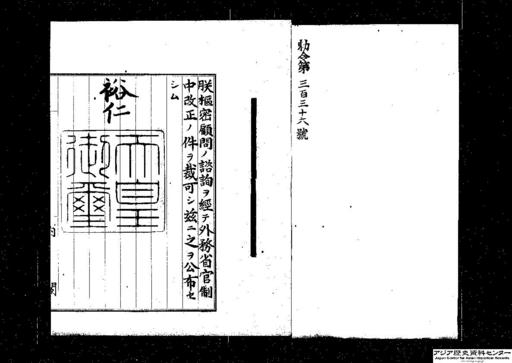 勅令第三百三十六號
朕樞密顧問ノ諮詢ヲ經テ外務省官制
中改正ノ件ヲ裁可シ玆ニ之ヲ公布セ
シム
裕仁
天皇御璽
内閣
アジア歴史資料センター
Japan Center for Asian Historical Records